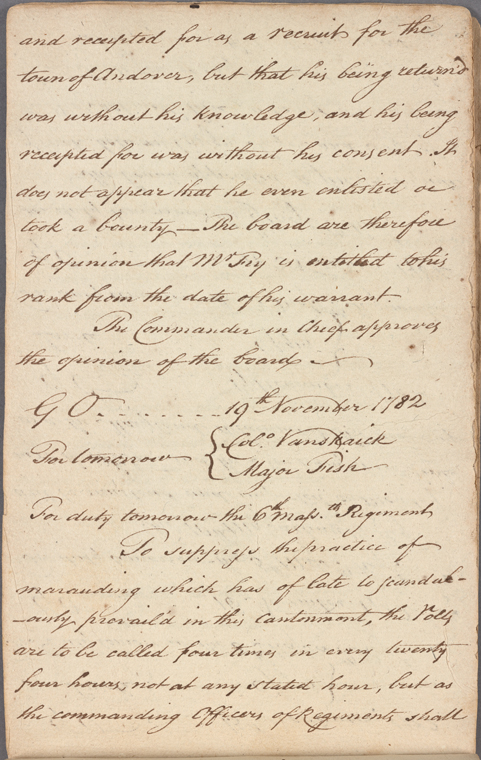 and receipted for as a recruit for the
town of Andover, but that his being return'd
was without his knowledge, and his being
receipted for was without his consent. It
does not appear that he even enlisted or
took a bounty — The board are therefore
of opinion that Mr Fry is entitled to his
rank from the date of his warrant.
The Commander in Chief approves
the opinion of the board —
G O. . . . . . . . 19th November 1782
For tomorrow { Colo. Vanskaick
Major Fish
For duty tomorrow the 6th Mass. Regiment
To suppress the practice of
marauding which has of late so scandal-
-ously prevail'd in this Cantonment, the rolls
are to be called four times in every twenty
four hours, not at any stated hour, but as
the commanding Officers of Regiments shall